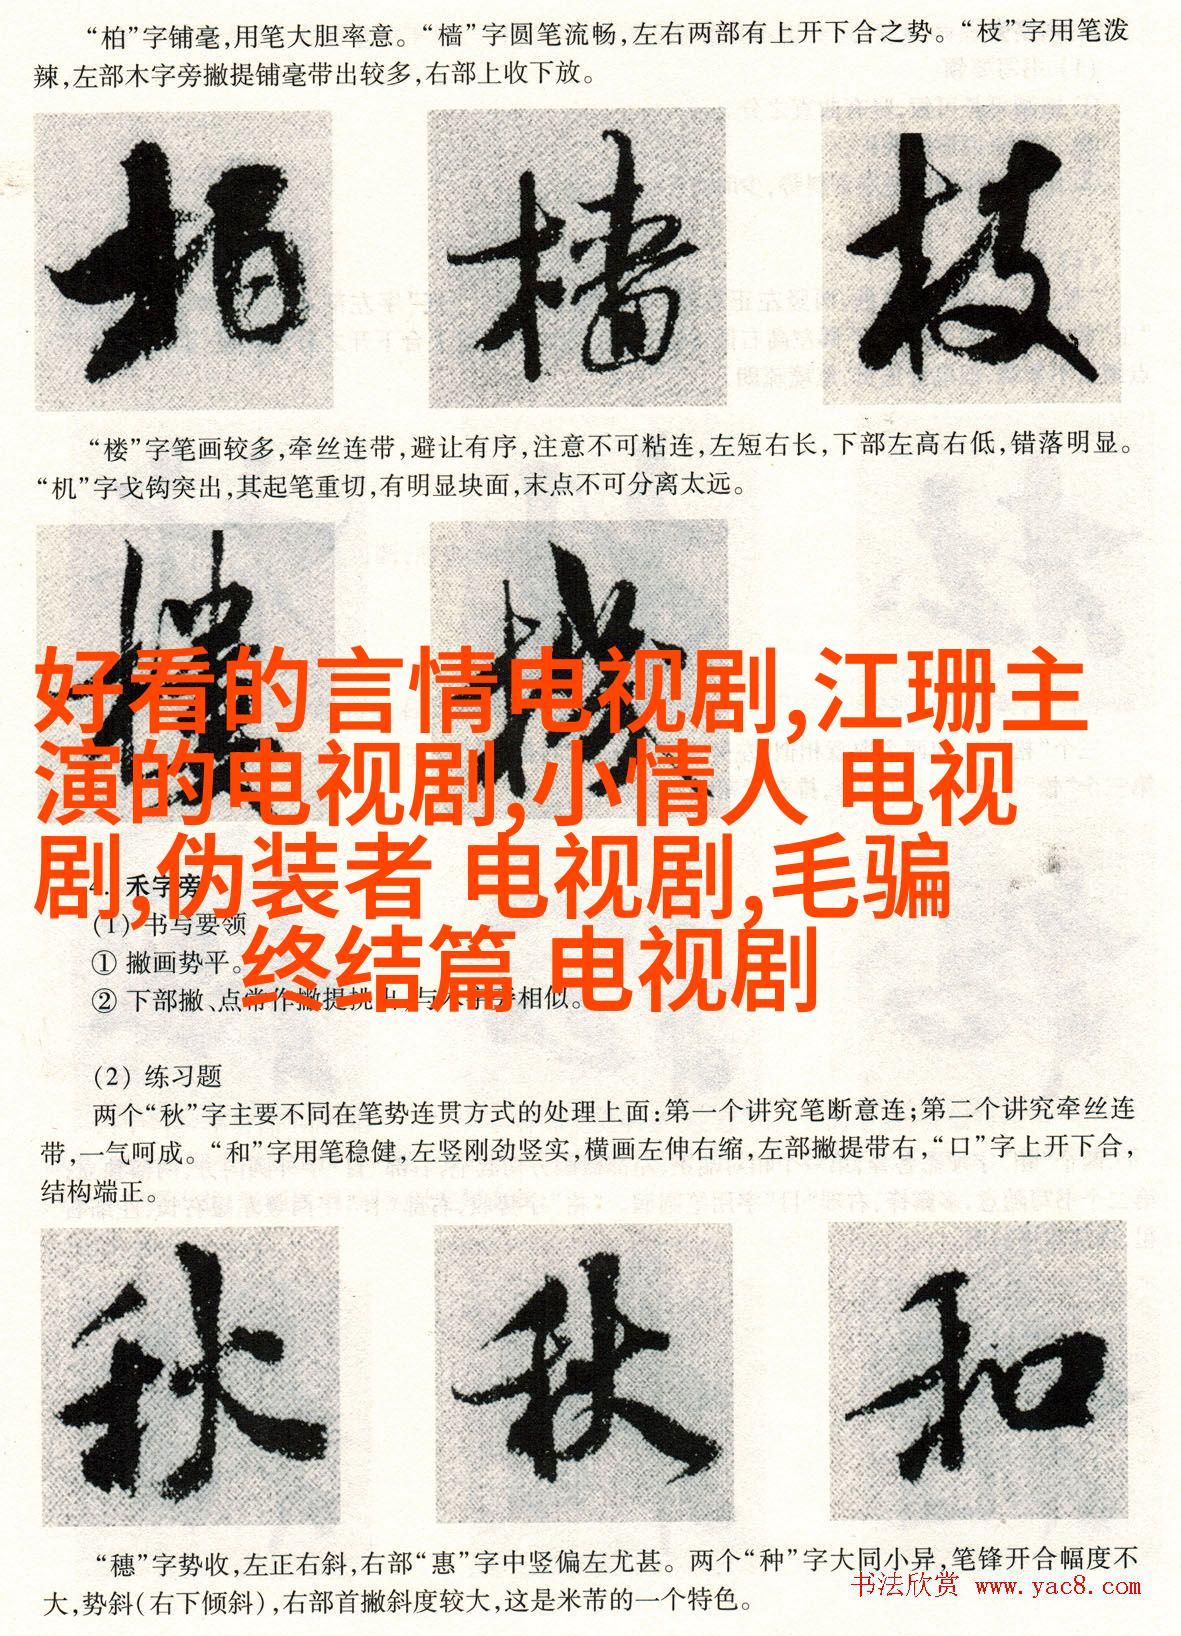 “柏”字铺毫,用笔大胆率意。“樯”字圆笔流畅,左右两部有上开下合之势。“枝”字用笔泼
辣,左部木字旁撇提铺毫带出较多,右部上收下放。
柏 樯 枝
“楼”字笔画较多,牵丝连带,避让有序,注意不可粘连,左短右长,下部左高右低,错落明显。
“机”字戈钩突出,其起笔重切,有明显块面,末点不可分离太远。
好看的言情电视剧,江珊主
演的电视剧,小情人 电视
剧,伪装者 电视剧,毛骗
终结篇 电视剧
4. 禾字旁
(1) 书写要领
① 撇画势平。
② 下部撇、点常作撇提挑出,与木字旁相似。
(2) 练习题
两个“秋”字主要不同在笔势连贯方式的处理上面:第一个讲究笔断意连;第二个讲究牵丝连
带,一气呵成。“和”字用笔稳健,左竖刚劲竖实,横画左伸右缩,左部撇提带右,“口”字上开下合,
结构端正。
秋 秋 和
“穗”字势收,左正右斜,右部“惠”字中竖偏左尤甚。两个“种”字大同小异,笔锋开合幅度不
大,势斜(右下倾斜),右部首撇斜度较大,这是米芾的一个特色。
书法欣赏 www.yac8.com